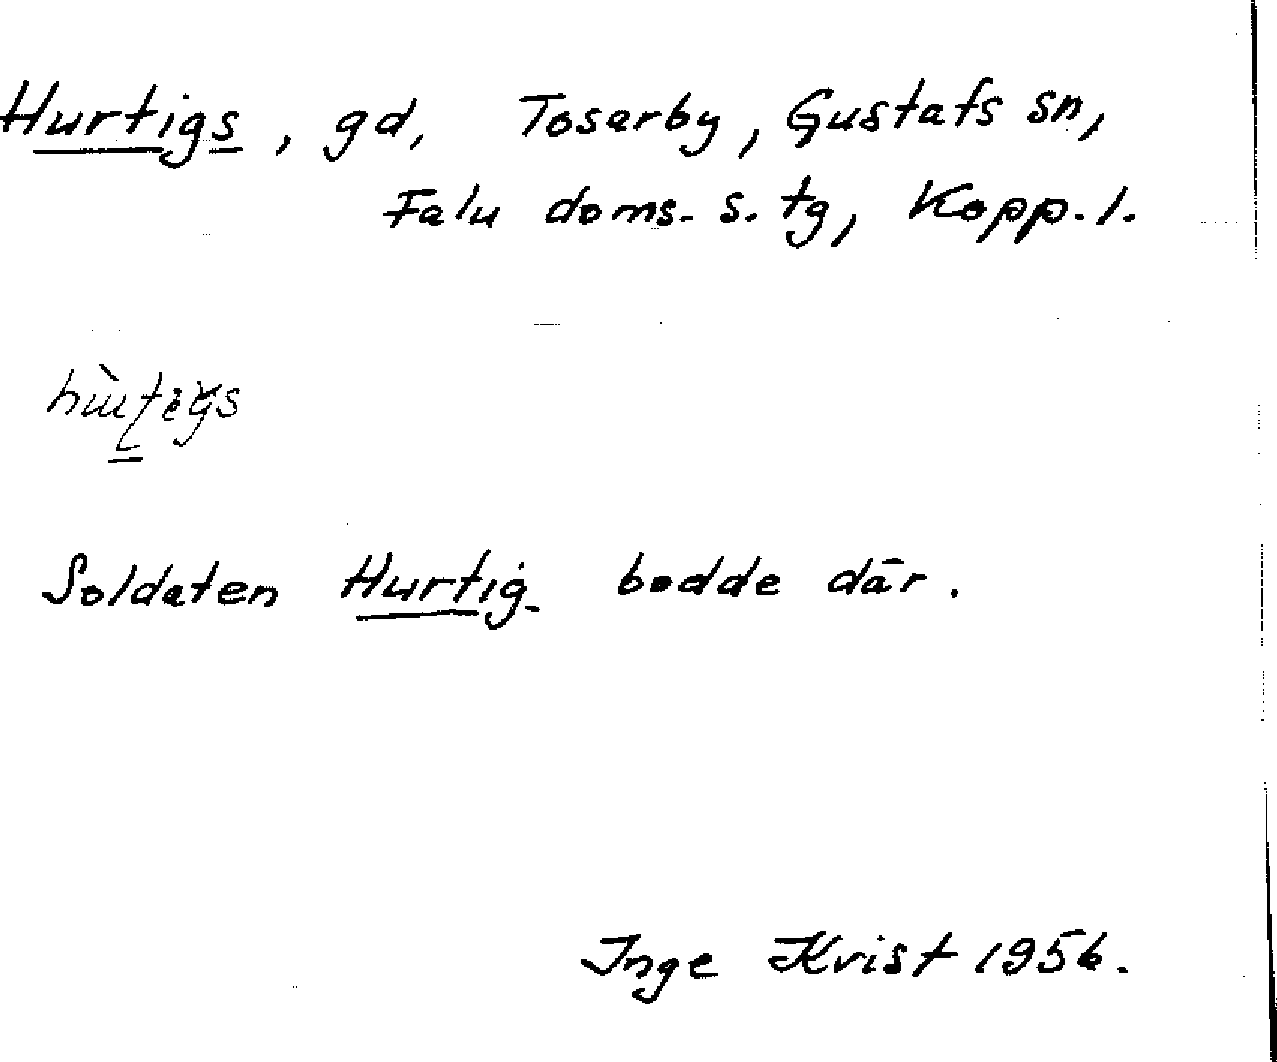 Hurtigs, gd, Toserby, Gustafs sn,
Falu doms. s. tg, Kopp. l.
Soldaten Hurtig bodde där.
Inge Kvist 1956.